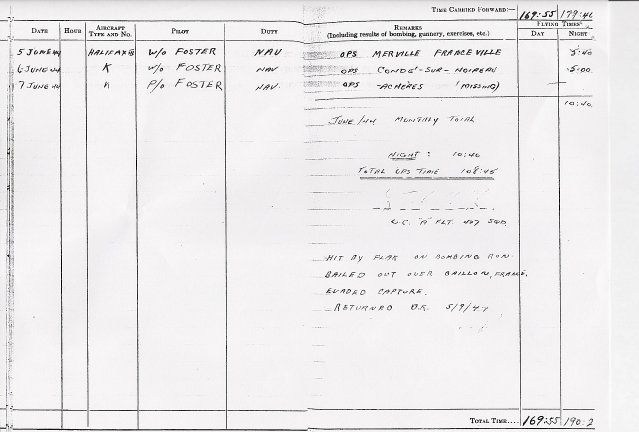 TIME CARRIED FORWARD:— 169:55 179:40
DATE HOUR AIRCRAFT TYPE AND NO. PILOT DUTY REMARKS (Including results of bombing, gunnery, exercises, etc.) FLYING TIMES DAY NIGHT
5 JUNE 44 HALIFAX III W/O FOSTER NAV OPS MERVILLE FRANCEVILLE 5:40
6 JUNE 44 K W/O FOSTER NAV OPS CONDÉ-SUR-NOIREAU 5:00
7 JUNE 44 K P/O FOSTER NAV OPS ACHERES (MISSING) —
10:40
JUNE/44 MONTHLY TOTAL
NIGHT: 10:40
TOTAL OPS TIME 108:45
O.C. "A" FLT. SQD.
HIT BY FLAK ON BOMBING RUN.
BAILED OUT OVER BAILLON, FRANCE,
EVADED CAPTURE.
RETURNED 5/9/44
TOTAL TIME.... 169:55 190:2